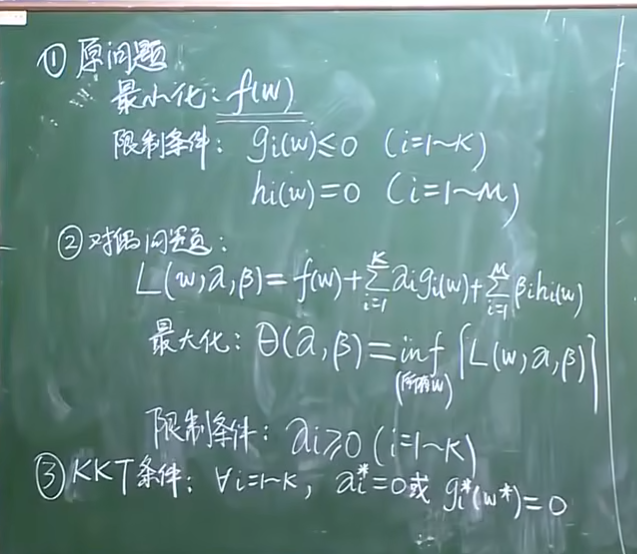 ① 原问题
最小化: f(w)
限制条件: gi(w)≤0 (i=1~K)
hi(w)=0 (i=1~M)
② 对偶问题:
L(w,α,β)=f(w)+∑_{i=1}^{K}αigi(w)+∑_{i=1}^{M}βihi(w)
最大化: Θ(α,β)=inf_{(所有w)}{L(w,α,β)}
限制条件: αi≥0 (i=1~K)
③ KKT条件: ∀i=1~K, αi*=0或 gi*(w*)=0